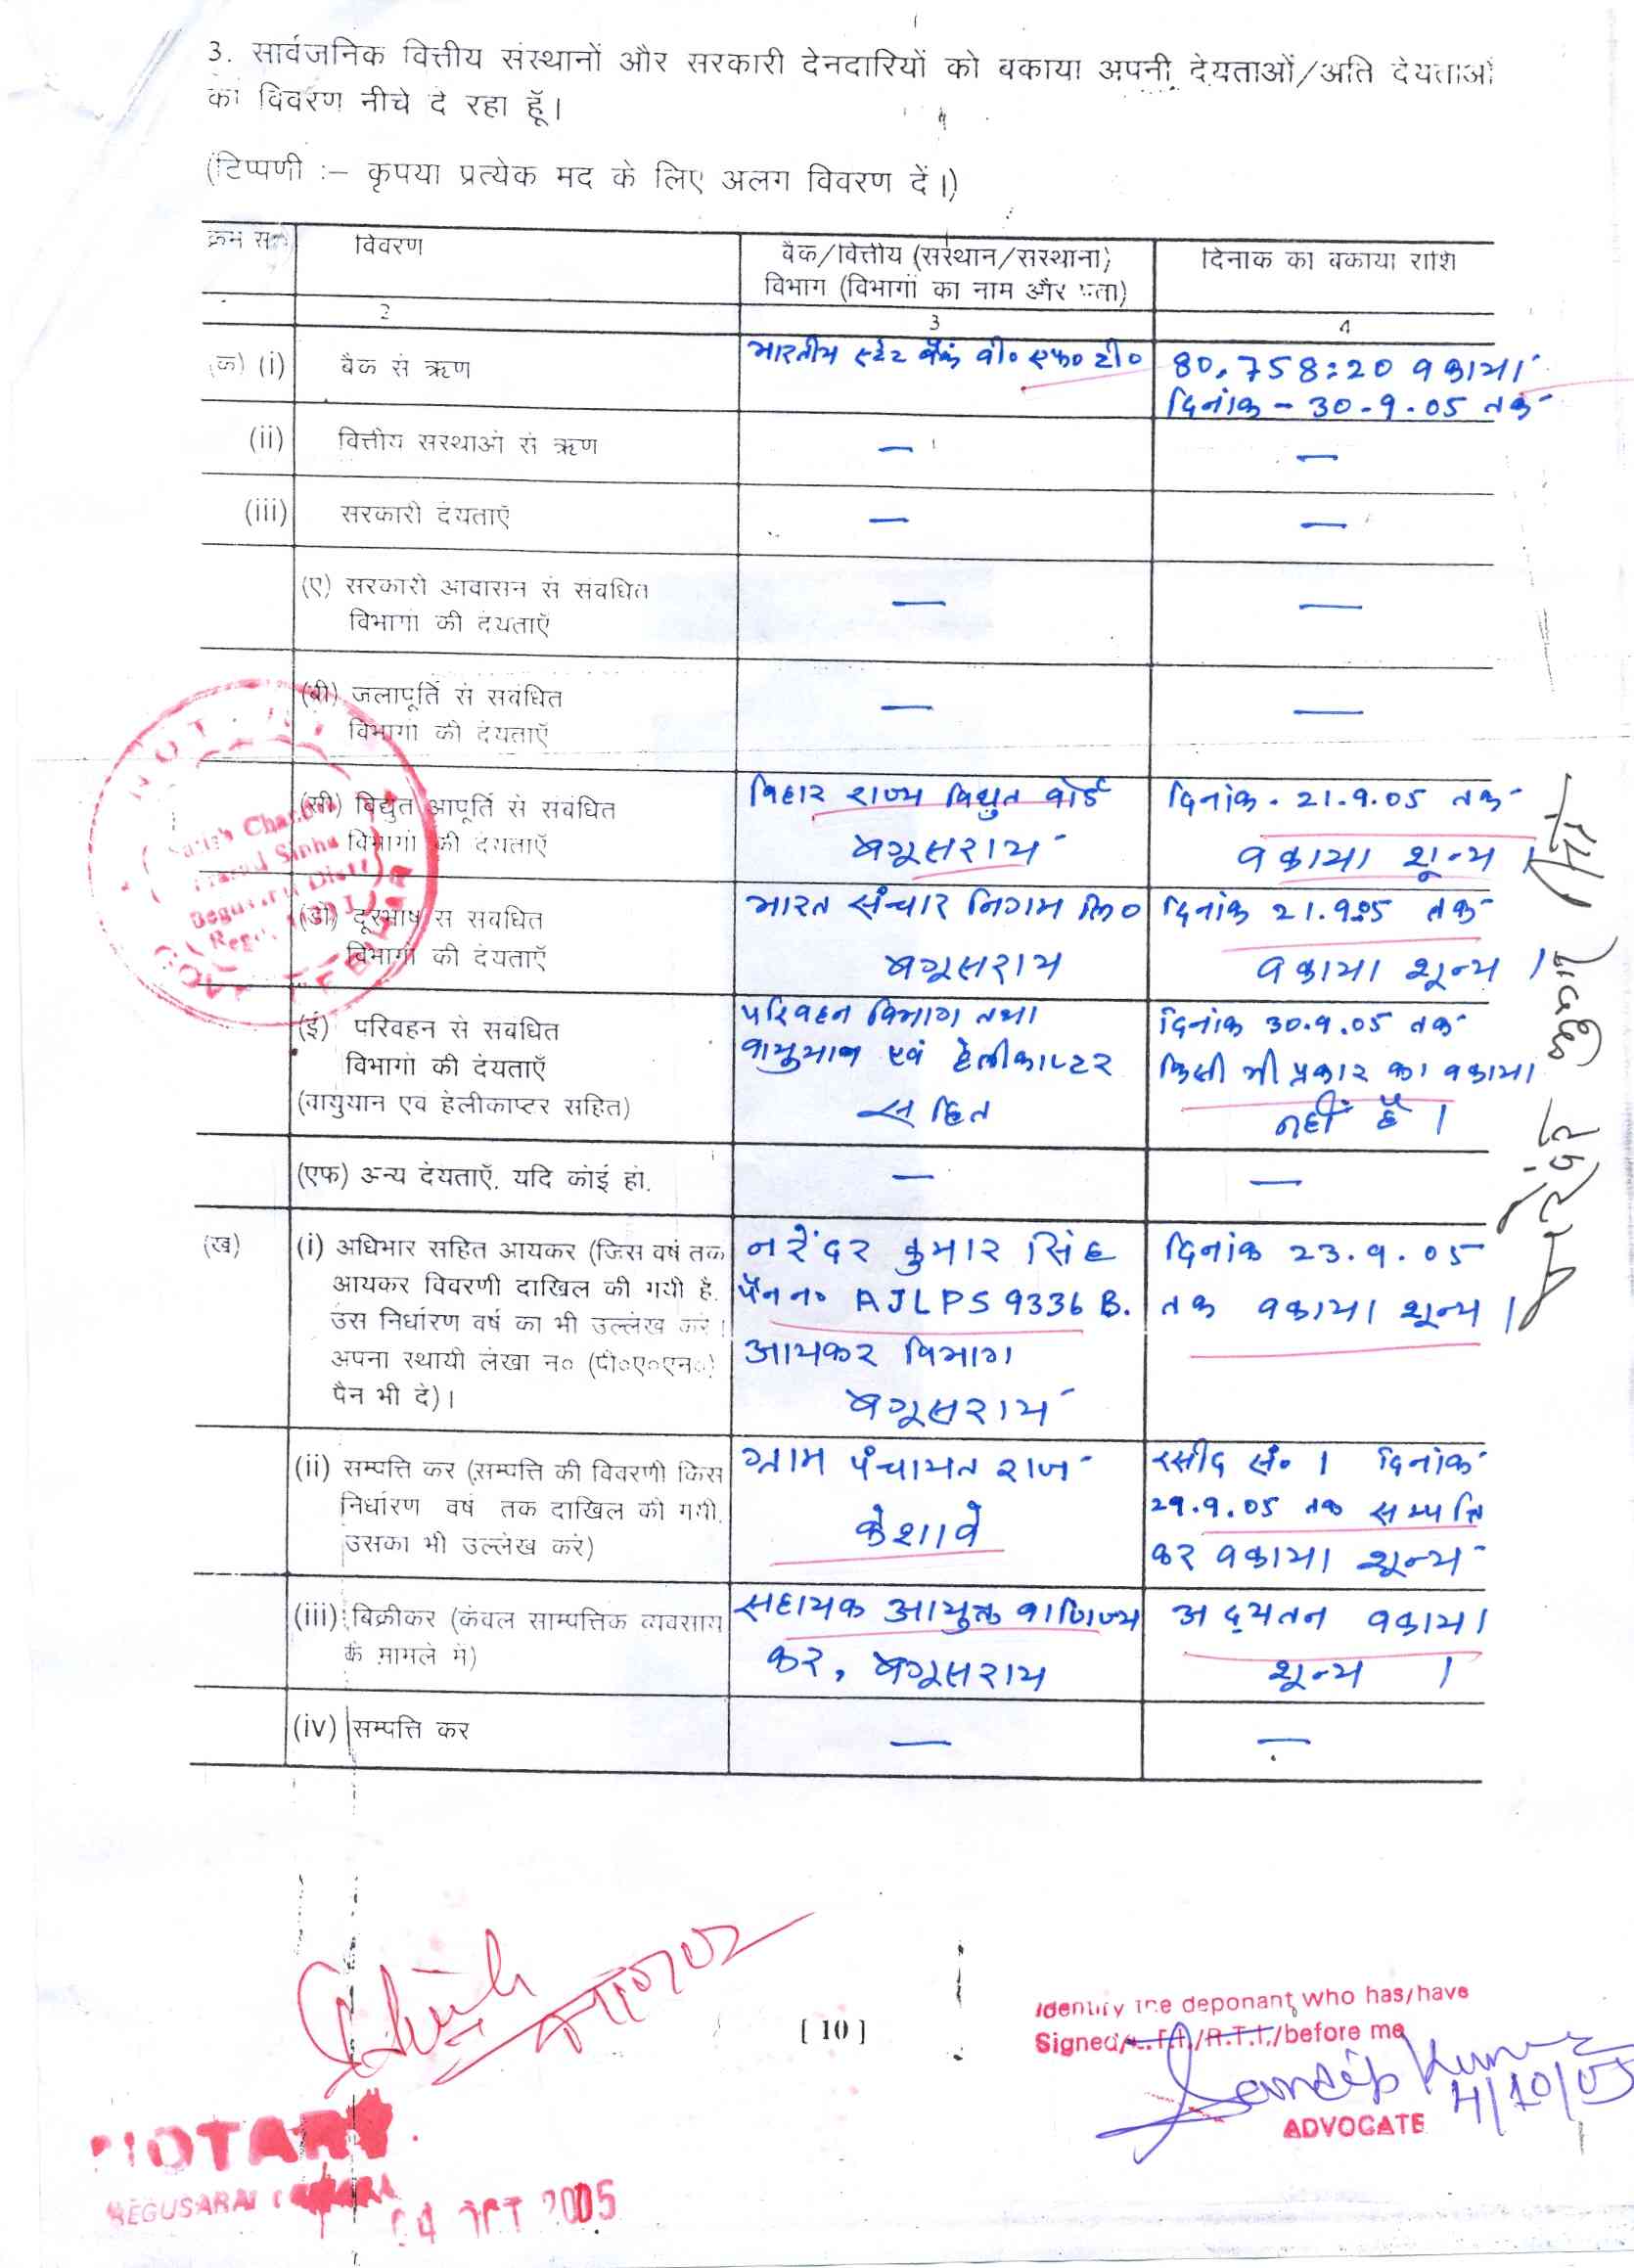 3. सार्वजनिक वित्तीय संस्थानों और सरकारी देनदारियों को बकाया अपनी देयताओं/अति देयताओं
का विवरण नीचे दे रहा हूँ।
(टिप्पणी :– कृपया प्रत्येक मद के लिए अलग विवरण दें।)
क्रम सं० विवरण बैंक/वित्तीय (संस्थान/संस्थानों) दिनांक को बकाया राशि
विभाग (विभागों का नाम और पता)
2 3 4
(क) (i) बैंक से ऋण भारतीय स्टेट बैंक बी० एफ० टी० 80,758:20 बकाया
दिनांक - 30-9-05 तक
(ii) वित्तीय संस्थाओं से ऋण — —
(iii) सरकारी देयताएँ — —
(ए) सरकारी आवासन से संबंधित — —
विभागों की देयताएँ
(बी) जलापूर्ति से संबंधित — —
विभागों की देयताएँ
(सी) विद्युत आपूर्ति से संबंधित बिहार राज्य विद्युत बोर्ड दिनांक - 21.9.05 तक
विभागों की देयताएँ बेगूसराय बकाया शून्य।
(डी) दूरभाष से संबंधित भारत संचार निगम लि० दिनांक 21.9.05 तक
विभागों की देयताएँ बेगूसराय बकाया शून्य।
(ई) परिवहन से संबंधित परिवहन विभाग तथा दिनांक 30.9.05 तक
विभागों की देयताएँ वायुयान एवं हेलीकाप्टर किसी भी प्रकार का बकाया
(वायुयान एवं हेलीकाप्टर सहित) सहित नहीं है।
(एफ) अन्य देयताएँ, यदि कोई हो. — —
(ख) (i) अधिभार सहित आयकर (जिस वर्ष तक नरेंदर कुमार सिंह दिनांक 23.9.05
आयकर विवरणी दाखिल की गयी है, पैन न० AJLPS9336B. तक बकाया शून्य।
उस निर्धारण वर्ष का भी उल्लेख करें। आयकर विभाग
अपना स्थायी लेखा न० (पी०ए०एन०) बेगूसराय
पैन भी दें)।
(ii) सम्पत्ति कर (सम्पत्ति की विवरणी किस ग्राम पंचायत राज रसीद सं० 1 दिनांक
निर्धारण वर्ष तक दाखिल की गयी, केशावे 29.9.05 तक सम्पत्ति
उसका भी उल्लेख करें) कर बकाया शून्य
(iii) बिक्रीकर (केवल साम्पत्तिक व्यवसाय सहायक आयुक्त वाणिज्य अद्यतन बकाया
के मामले में) कर, बेगूसराय शून्य।
(iv) सम्पत्ति कर — —
[ 10 ]
Identify the deponant who has/have
Signed/L.T.I./R.T.I./before me
Sandip Kumar
4/10/05
ADVOCATE
NOTARY
BEGUSARAI
04 OCT 2005